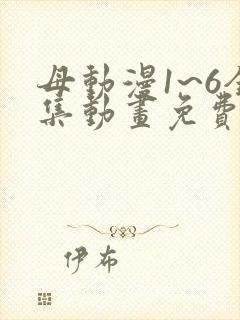 母動漫1~6全
集動畫免費
伊布